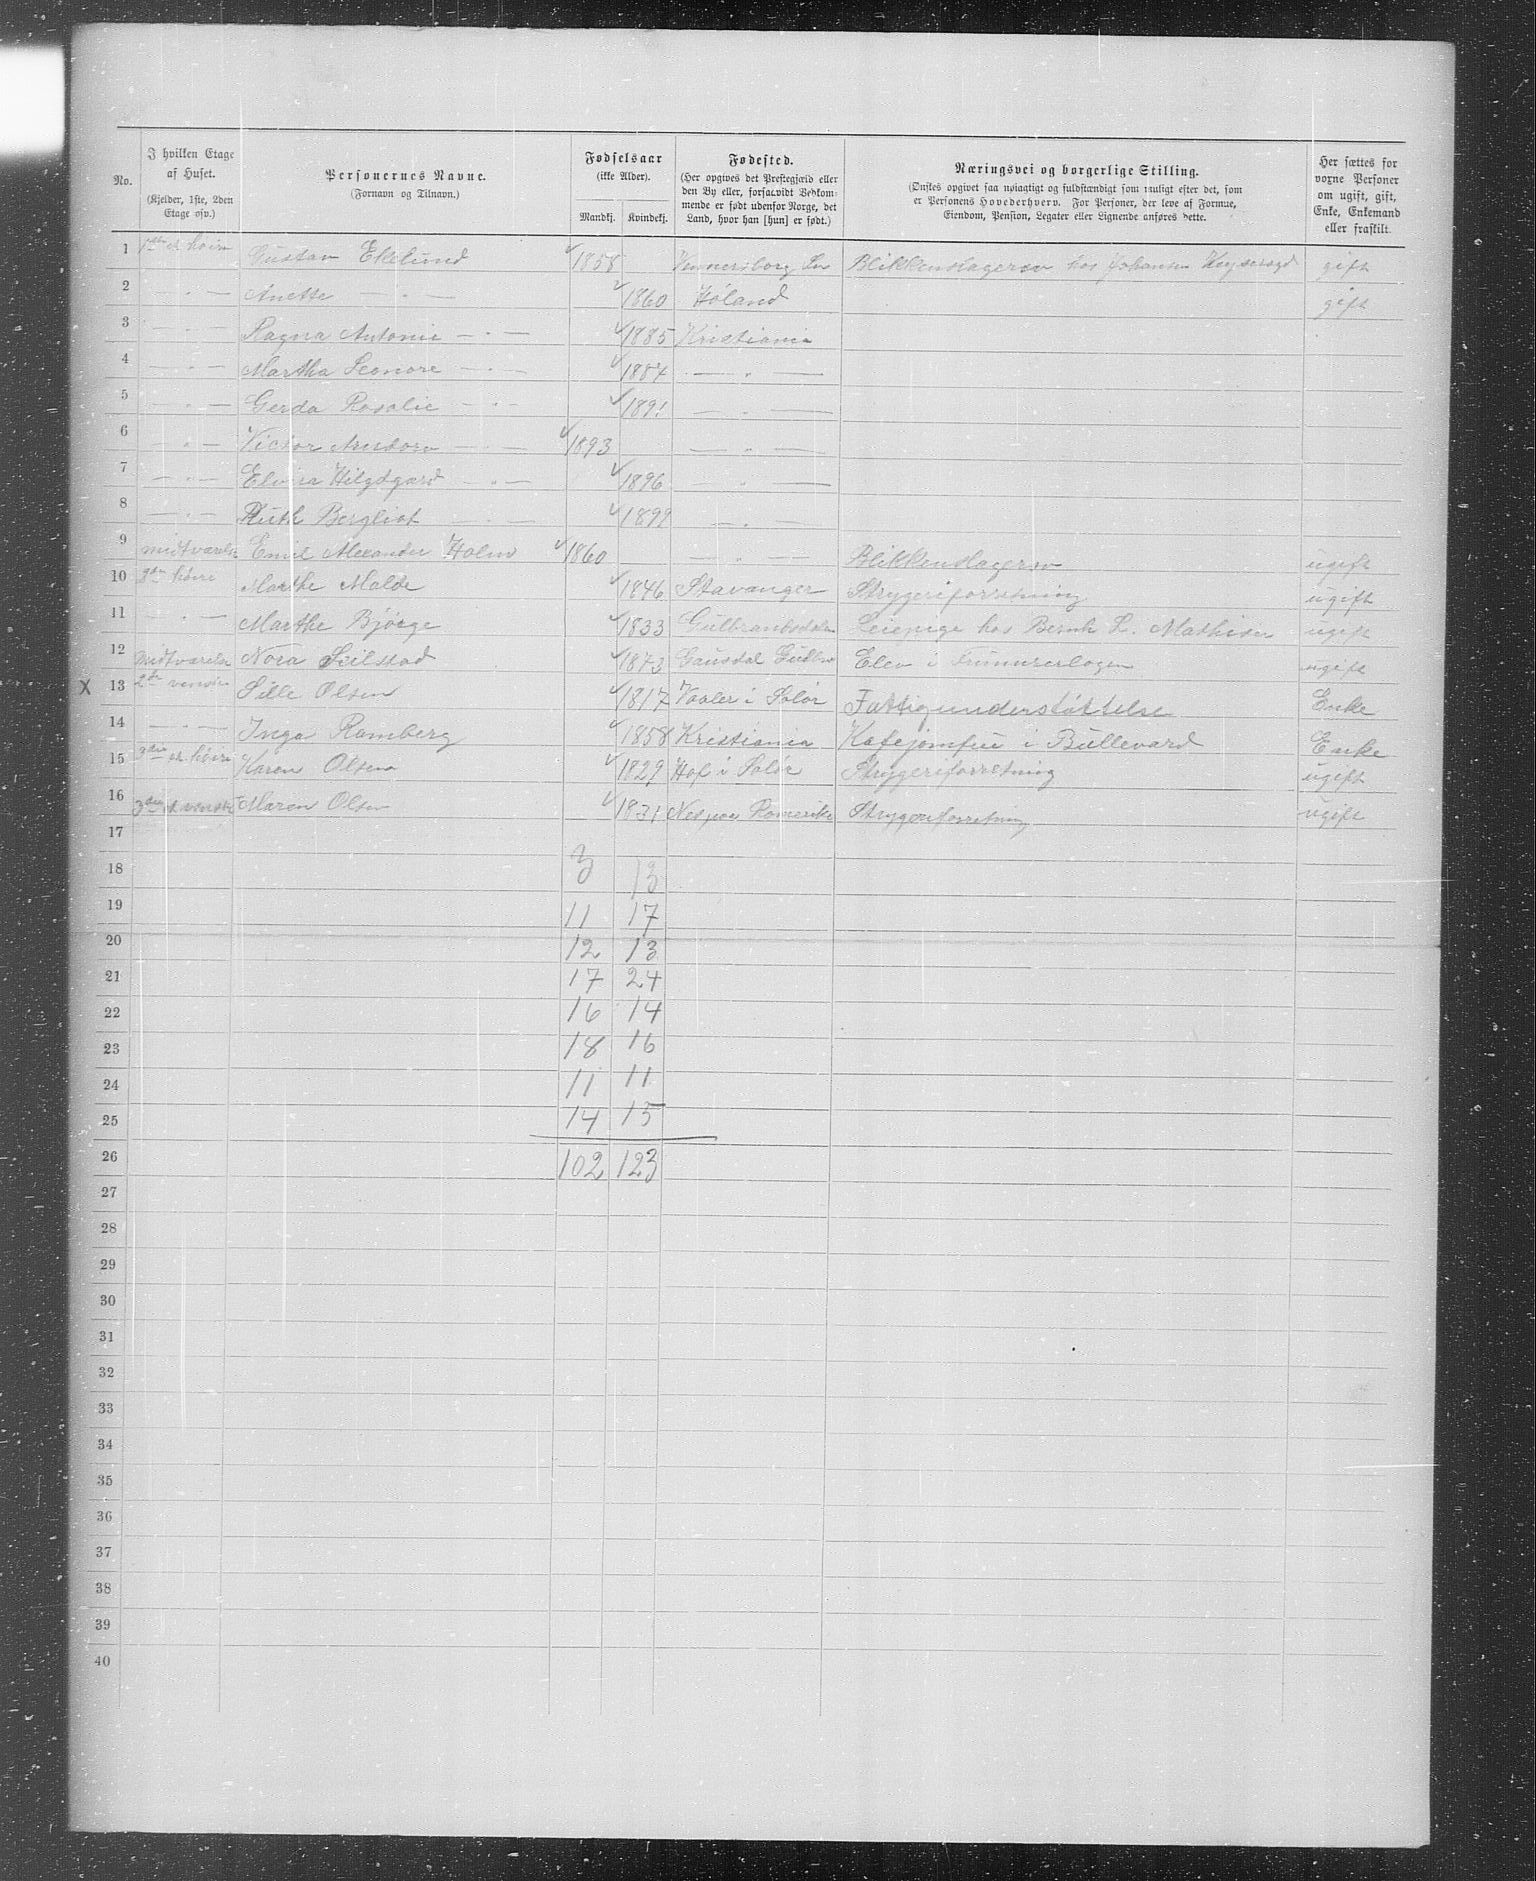 No.
I hvilken Etage af Huset.
(Kjelder, 1ste, 2den Etage osv.)
Personernes Navne.
(Fornavn og Tilnavn.)
Fødselsaar
(ikke Alder).
Mandkj. Kvindekj.
Fødested.
(Her opgives det Prestegjæld eller
den By eller, forsaavidt Vedkom-
mende er født udenfor Norge, det
Land, hvor han [hun] er født.)
Næringsvei og borgerlige Stilling.
(Ønskes opgivet saa nøiagtigt og fuldstændigt som muligt efter det, som
er Personens Hovederhverv. For Personer, der leve af Formue,
Eiendom, Pension, Legater eller Lignende anføres dette.
Her sættes for
voxne Personer
om ugift, gift,
Enke, Enkemand
eller fraskilt.
1 Gustav Ekelund 1858 Blikkenslagersv hos Johansen gift
2 — " — Anette — " — 1860 Høland gift
3 — " — Ragna Antonie — " — 1885 Kristiania
4 — " — Martha Leonore — " — 1887 — " —
5 — " — Gerda Rosalie — " — 1891 — " —
6 — " — Victor — " — 1893 — " —
7 — " — Elvira Hilgdgard — " — 1896 — " —
8 — " — Ruth Bergliot — " — 1899 — " —
9 Emil Alexander Holm 1860 — " — Blikkenslagersv ugift
10 3die høire Marthe Malde 1846 Stavanger Strygeriforretning ugift
11 — " — Marthe Bjørge 1833 Gulbrandsdalen Leiepige hos Bernh L. Mathisen ugift
12 Nora 1873 Gausdal Elev i ugift
X 13 2den venstre Sille Olsen 1817 Vaaler i Solør Fattigunderstøttelse Enke
14 — " — Inga Ramberg 1858 Kristiania Kafejomfru i Bullevard Enke
15 Karen Olsen 1829 Hof i Solør Strygeriforretning ugift
16 Maren Olsen 1831 Romerike Strygeriforretning ugift
17
18 3 13
19 11 17
20 12 13
21 17 24
22 16 14
23 18 16
24 11 11
25 14 15
26 102 123
27
28
29
30
31
32
33
34
35
36
37
38
39
40